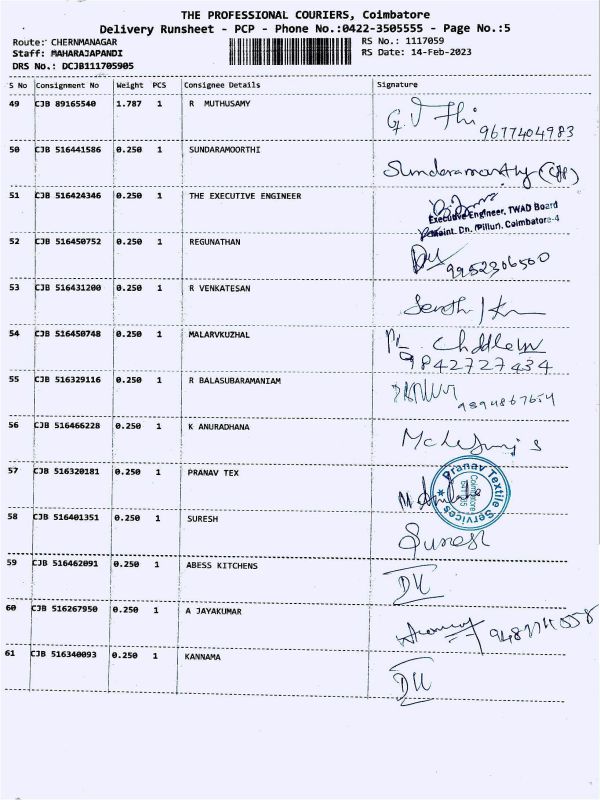 THE PROFESSIONAL COURIERS, Coimbatore
Delivery Runsheet - PCP - Phone No.:0422-3505555 - Page No.:5
Route: CHERNMANAGAR RS No.: 1117059
Staff: MAHARAJAPANDI RS Date: 14-Feb-2023
DRS No.: DCJB111705905
S No Consignment No Weight PCS Consignee Details Signature
49 CJB 89165540 1.787 1 R MUTHUSAMY
9677404983
50 CJB 516441586 0.250 1 SUNDARAMOORTHI
51 CJB 516424346 0.250 1 THE EXECUTIVE ENGINEER
Executive Engineer, TWAD Board
Maint. Dn. /Pilluri, Coimbatore-4
52 CJB 516450752 0.250 1 REGUNATHAN
9952306500
53 CJB 516431200 0.250 1 R VENKATESAN
54 CJB 516450748 0.250 1 MALARVKUZHAL
9842727434
55 CJB 516329116 0.250 1 R BALASUBARAMANIAM
9894867654
56 CJB 516466228 0.250 1 K ANURADHANA
57 CJB 516320181 0.250 1 PRANAV TEX
Pranav Textile Services
Coimbatore
58 CJB 516401351 0.250 1 SURESH
Suresh
59 CJB 516462091 0.250 1 ABESS KITCHENS
60 CJB 516267950 0.250 1 A JAYAKUMAR
61 CJB 516340093 0.250 1 KANNAMA